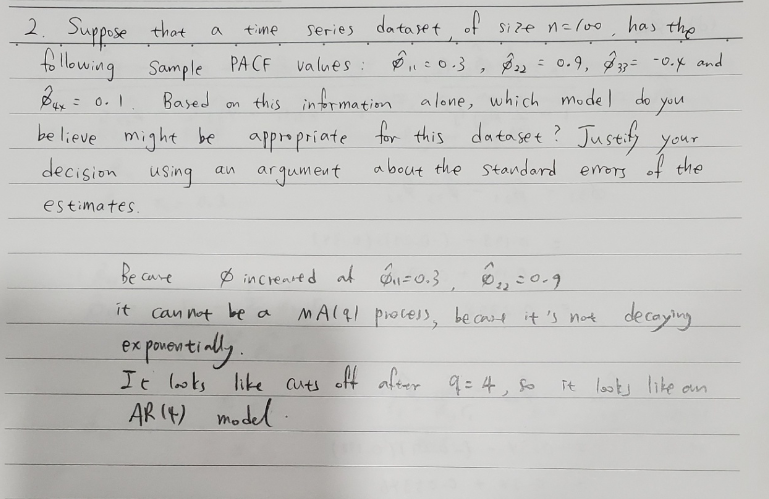 2. Suppose that a time series dataset, of size n=100, has the
following sample PACF values: φ̂₁₁ = 0.3, φ̂₂₂ = 0.9, φ̂₃₃ = -0.4 and
φ̂₄ₓ = 0.1. Based on this information alone, which model do you
believe might be appropriate for this dataset? Justify your
decision using an argument about the standard errors of the
estimates.
Because φ increased at φ̂₁₁=0.3, φ̂₂₂=0.9
it cannot be a MA(q) process, because it's not decaying
exponentially.
It looks like cuts off after q=4, so it looks like an
AR(4) model.